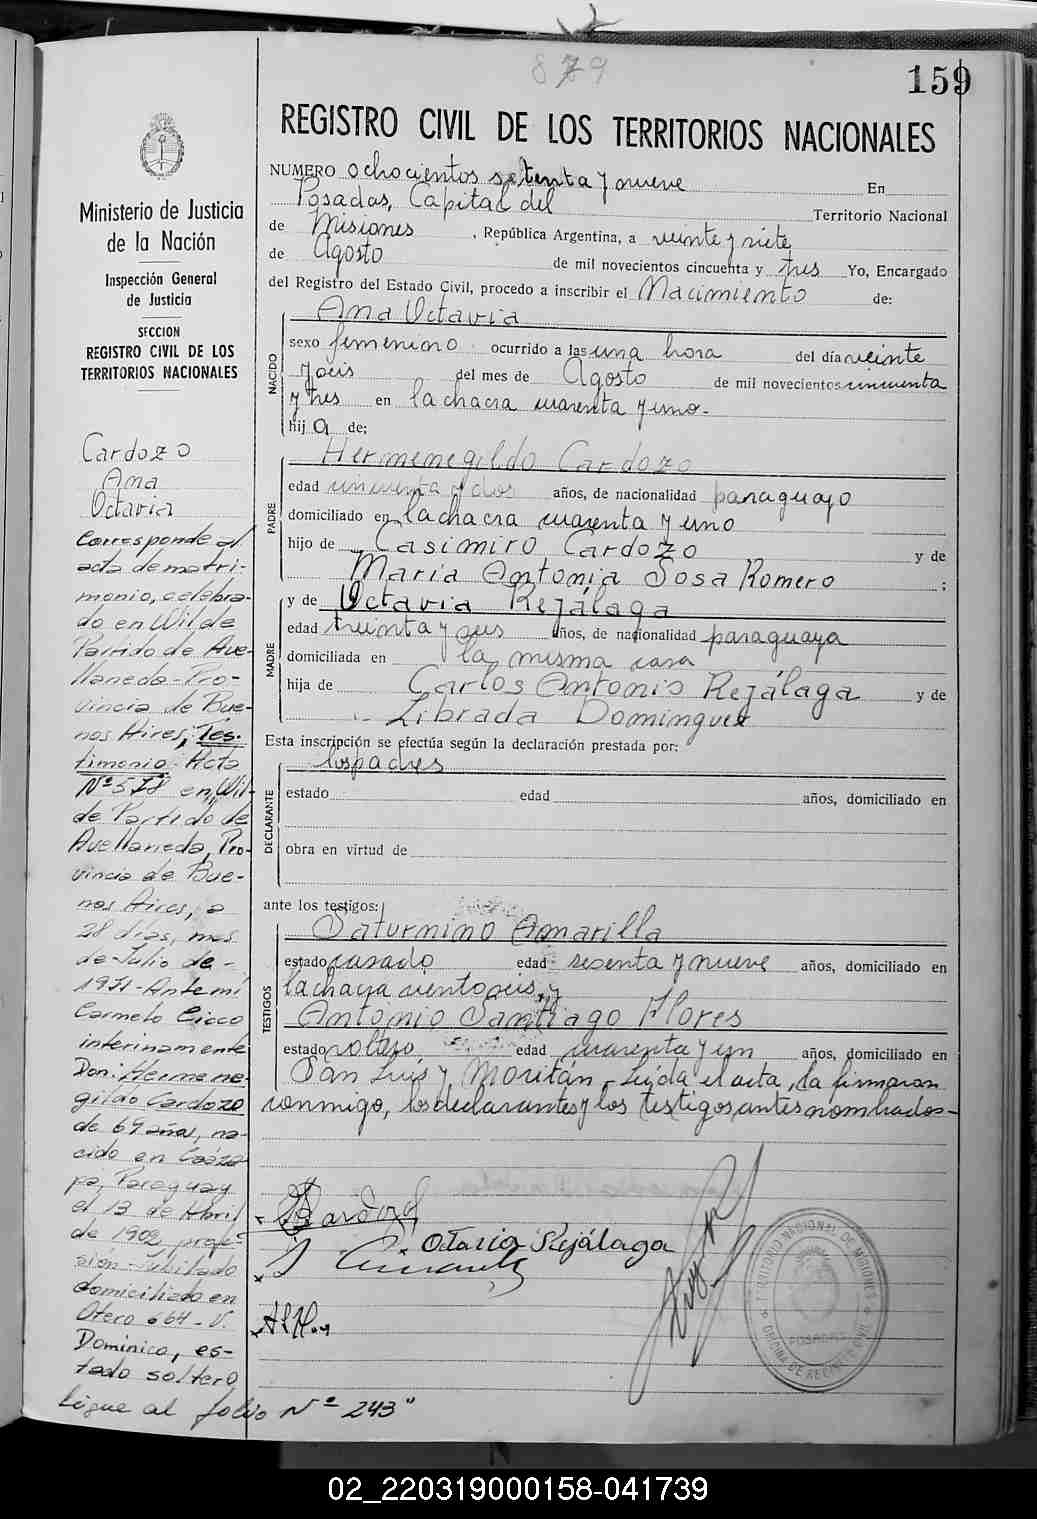 879
159
REGISTRO CIVIL DE LOS TERRITORIOS NACIONALES
NUMERO ochocientos setenta y nueve En
Posadas, Capital del Territorio Nacional
de Misiones, República Argentina, a veinte y siete
de Agosto de mil novecientos cincuenta y tres Yo, Encargado
del Registro del Estado Civil, procedo a inscribir el Nacimiento de:
Ana Octavia
NACIDO
sexo femenino ocurrido a las una hora del día veinte
y seis del mes de Agosto de mil novecientos cincuenta
y tres en la chacra cuarenta y uno.-
hij a de:
Hermenegildo Cardozo
PADRE
edad cincuenta y dos años, de nacionalidad paraguayo
domiciliado en la chacra cuarenta y uno
hijo de Casimiro Cardozo y de
Maria Antonia Sosa Romero ;
y de Octavia Rejálaga
MADRE
edad treinta y seis años, de nacionalidad paraguaya
domiciliada en la misma casa
hija de Carlos Antonio Rejálaga y de
Librada Dominguez
Esta inscripción se efectúa según la declaración prestada por:
los padres
DECLARANTE
estado edad años, domiciliado en
obra en virtud de
ante los testigos:
Saturnino Amarilla
TESTIGOS
estado casado edad sesenta y nueve años, domiciliado en
la chacra ciento seis, y
Antonio Santiago Flores
estado soltero, edad cuarenta y un años, domiciliado en
San Luis y Moritán.- Leída el acta, la firmaron
conmigo, los declarantes y los testigos antes nombrados.-
H Cardozo
Otavia Rejálaga
TERRITORIO NACIONAL DE MISIONES
POSADAS
OFICINA DE REGISTRO CIVIL
Ministerio de Justicia
de la Nación
Inspección General
de Justicia
SECCION
REGISTRO CIVIL DE LOS
TERRITORIOS NACIONALES
Cardozo
Ana
Octavia
Corresponde al
acta de matri-
monio, celebra-
do en Wilde
Partido de Ave-
llaneda-Pro-
vincia de Bue-
nos Aires, Tes-
timonio: Acta
Nº 578 en Wil-
de Partido de
Avellaneda, Pro-
vincia de Bue-
nos Aires, a
28 días, mes
de Julio de-
1971-Ante mí
Carmelo Cicco
interinamente
Don: Hermene-
gildo Cardozo
de 69 años, na-
cido en Caáza-
pá, Paraguay
el 13 de Abril
de 1902, profe-
sión-Jubilado
domiciliado en
Otero 664-V.
Dominico, es-
tado soltero
Sigue al folio Nº 243"
02_220319000158-041739